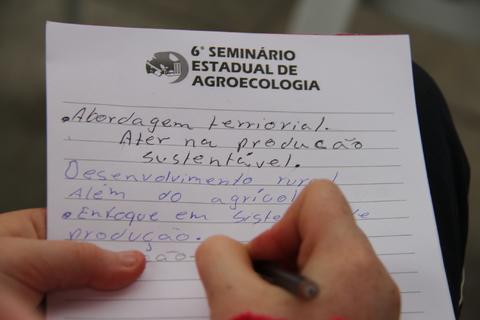 6º SEMINÁRIO
ESTADUAL DE
AGROECOLOGIA
•Abordagem terriorial.
Ater na producão
sustentável.
Desenvolvimento rural
Além do agrícol
•Enfoque em sist
produção.